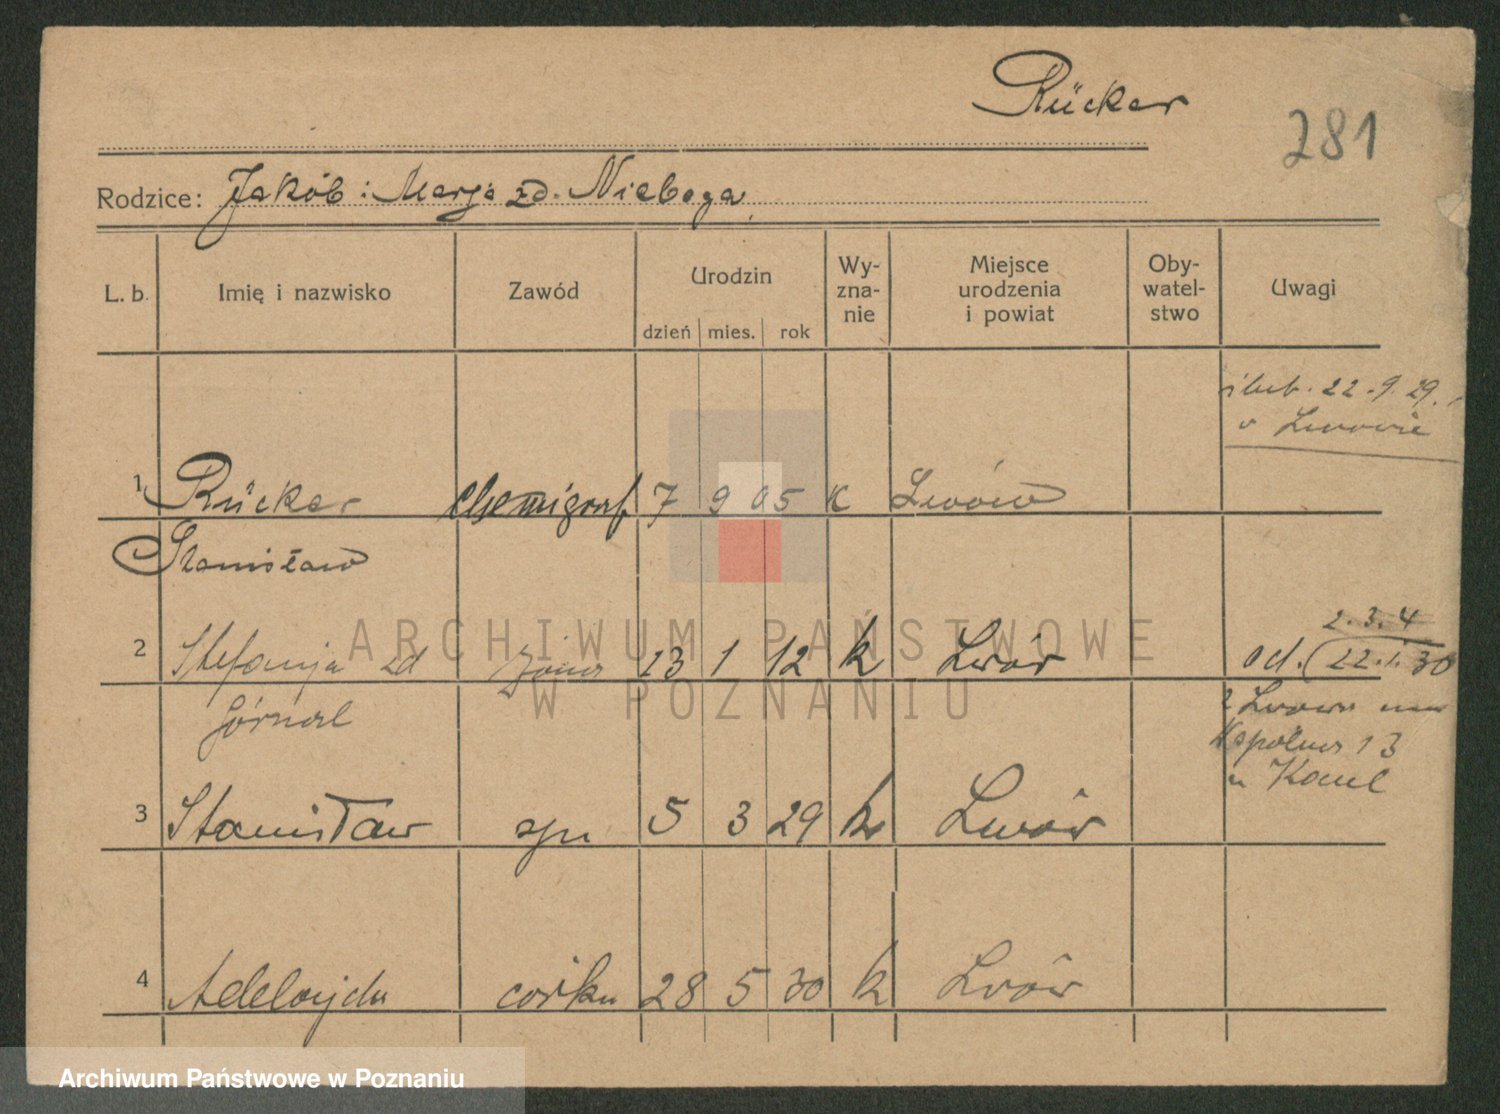 Rücker
281
Rodzice: Jakób i Marja zd. Nieboga
L. b. Imię i nazwisko Zawód Urodzin Wy-zna-nie Miejsce urodzenia i powiat Oby-watel-stwo Uwagi
dzień mies. rok
ślub. 22.9.29.
w Lwowie
1 Rücker chemigraf 7 9 05 K Lwów
Stanisław
2. 3. 4
2 Stefanja zd żona 23 1 12 k Lwów od. 22.1.30
Górnal
z Lwowa
13
3 Stanisław syn 5 3 29 k Lwów
4 Adelajda córka 28 5 30 k Lwów
ARCHIWUM PAŃSTWOWE
W POZNANIU
Archiwum Państwowe w Poznaniu